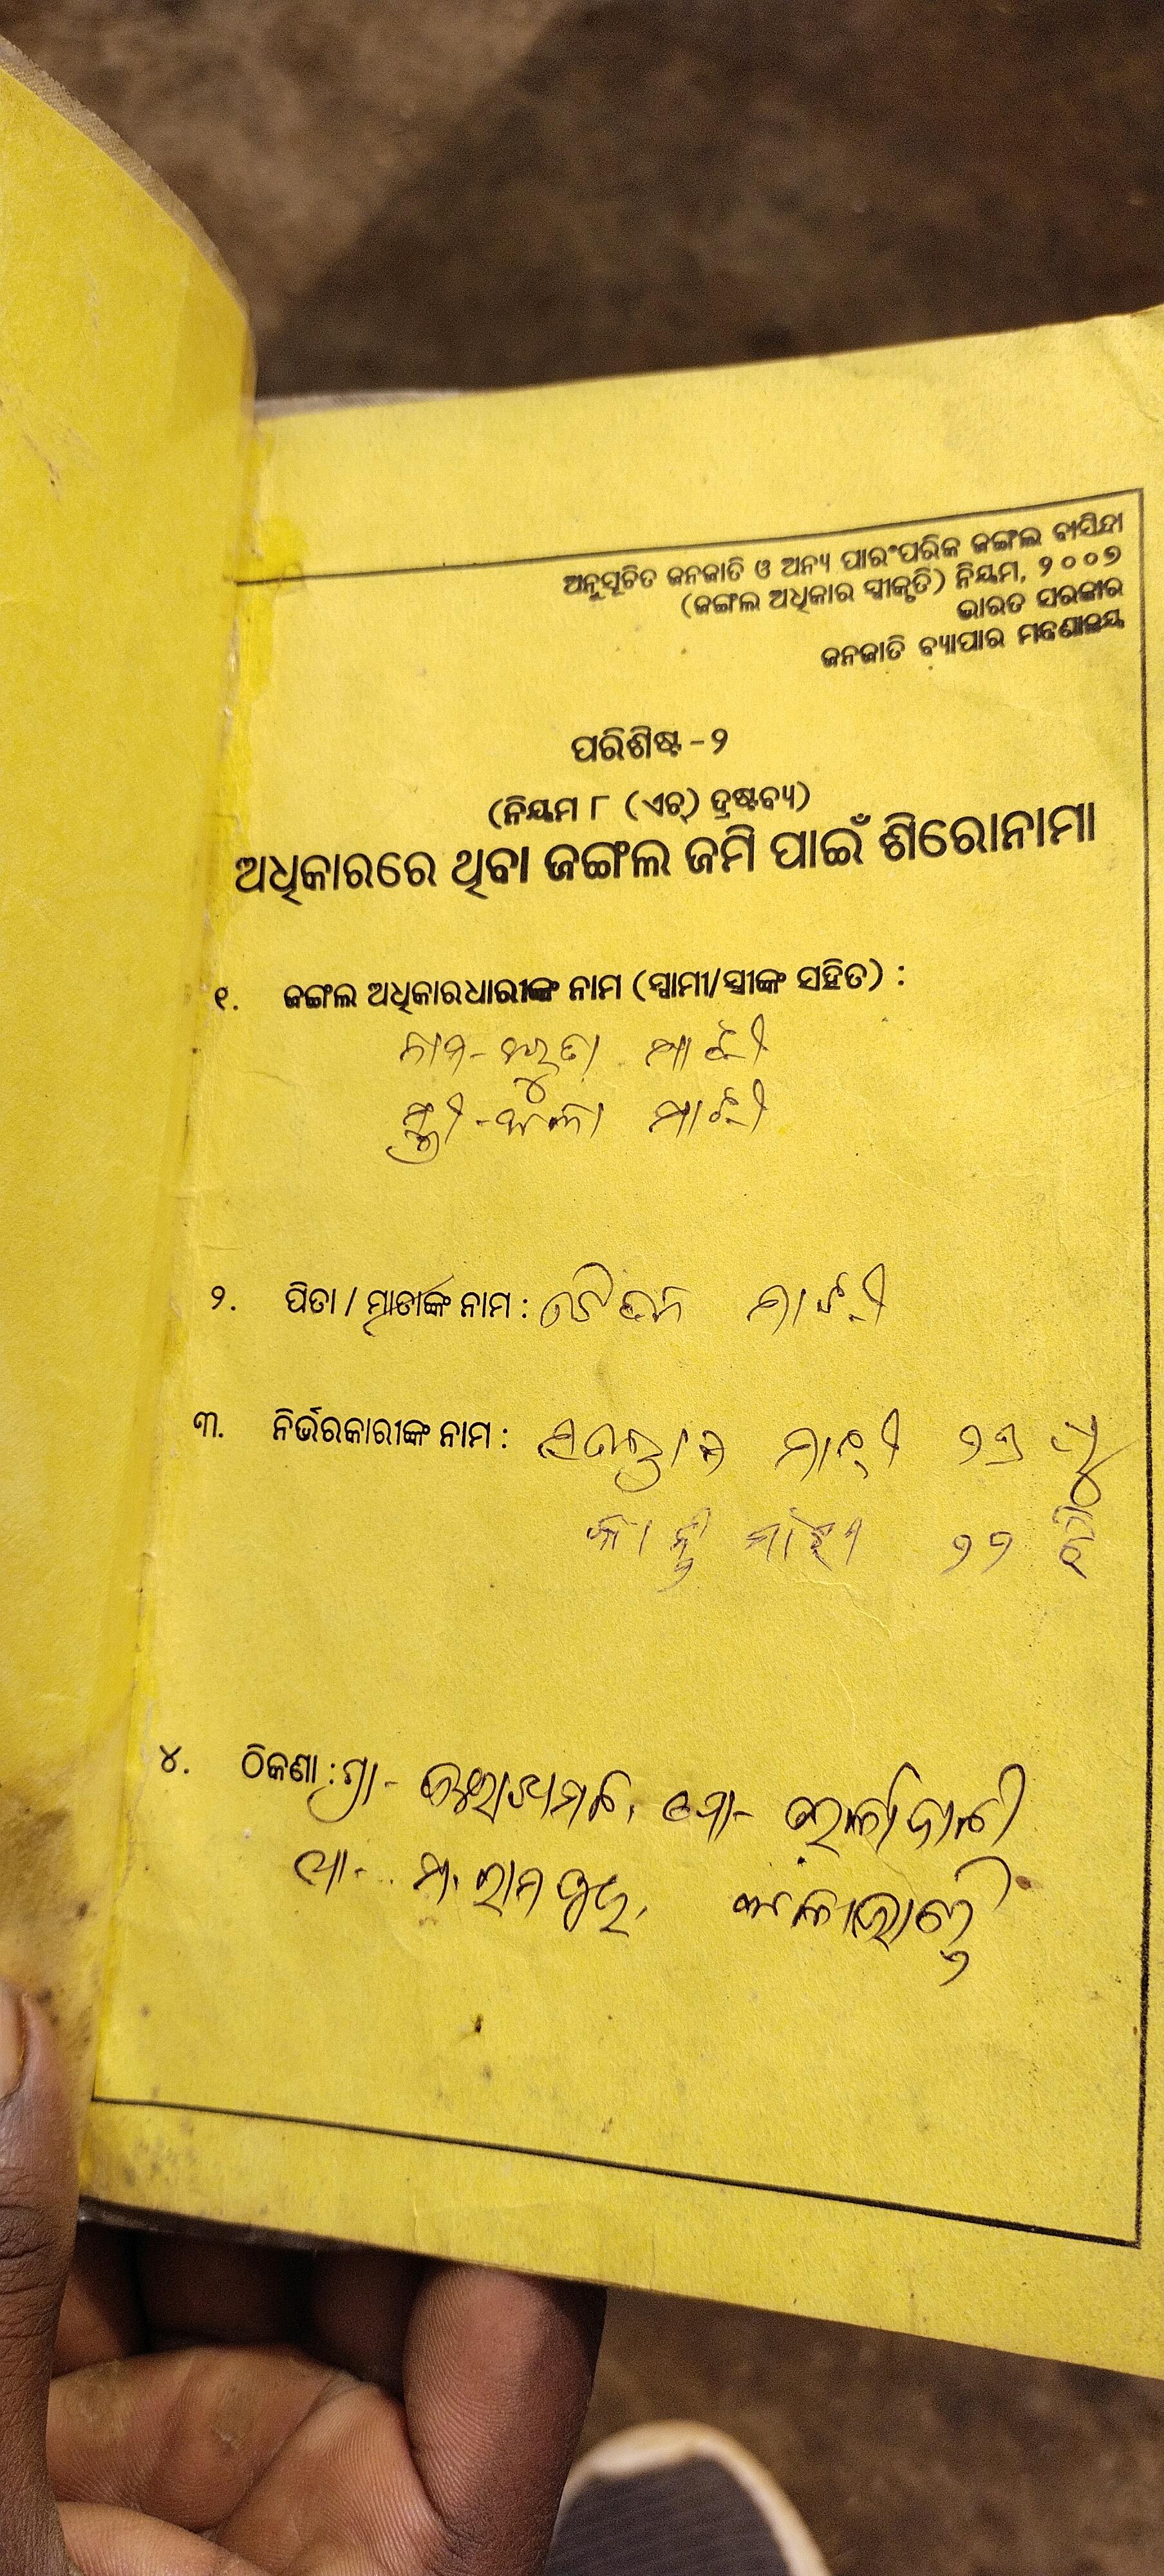 ଅନୁସୂଚିତ ଜନଜାତି ଓ ଅନ୍ୟ ପାରଂପରିକ ଜଙ୍ଗଲ ବାସିନ୍ଦା
(ଜଙ୍ଗଲ ଅଧିକାର ସ୍ୱୀକୃତି) ନିୟମ, ୨୦୦୭
ଭାରତ ସରକାର
ଜନଜାତି ବ୍ୟାପାର ମନ୍ତ୍ରଣାଳୟ
ପରିଶିଷ୍ଟ - ୨
(ନିୟମ ୮ (ଏଚ୍) ଦ୍ରଷ୍ଟବ୍ୟ)
ଅଧିକାରରେ ଥିବା ଜଙ୍ଗଲ ଜମି ପାଇଁ ଶିରୋନାମା
୧. ଜଙ୍ଗଲ ଅଧିକାରଧାରୀଙ୍କ ନାମ (ସ୍ୱାମୀ/ସ୍ତ୍ରୀଙ୍କ ସହିତ) :
ନାମ - ମାଝୀ
ସ୍ତ୍ରୀ - ମାଝୀ
୨. ପିତା / ମାତାଙ୍କ ନାମ : ମାଝୀ
୩. ନିର୍ଭରକାରୀଙ୍କ ନାମ : ମାଝୀ ପୁ
ମାଝୀ ୨୨ ଝି
୪. ଠିକଣା : ଗ୍ରା - ପୋ -
ଥା - ମ. ରାମପୁର, କଳାହାଣ୍ଡି